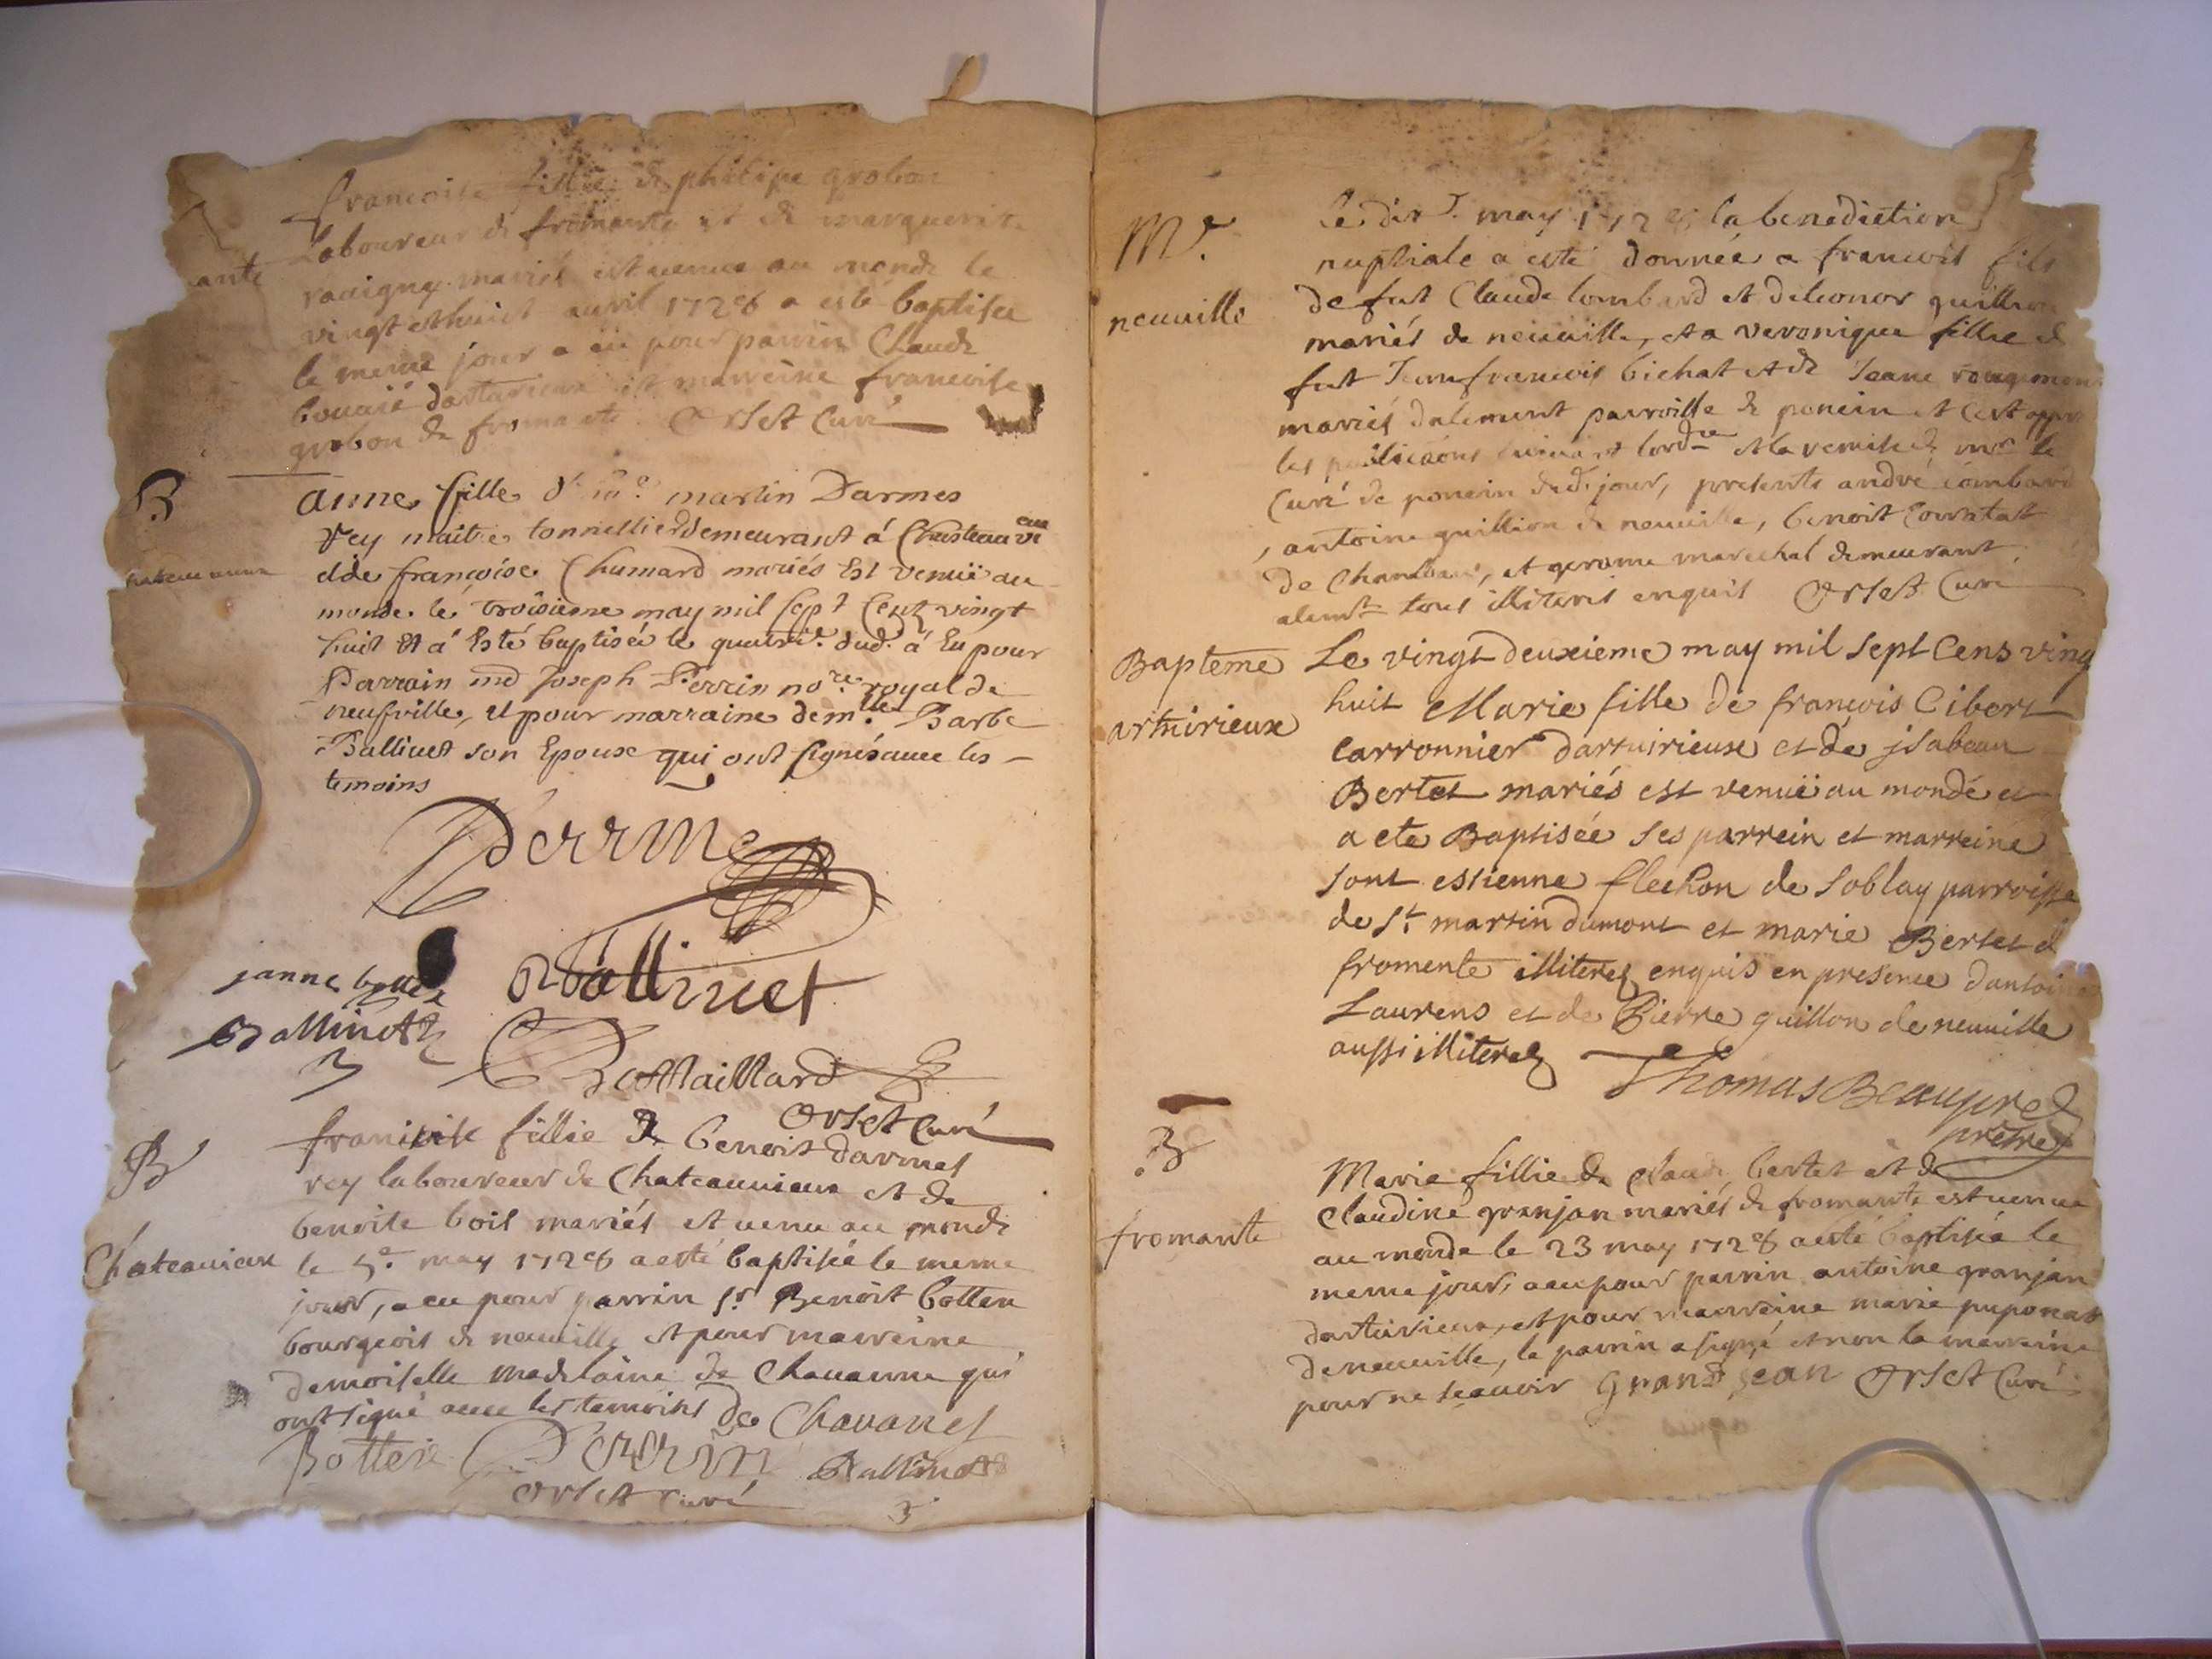 francoise fillie de philipe grobon
Laboureur de fromante et de marguerite
ravigny mariés est venue au monde le
ante
vingt et huict avril 1728 a esté baptisee
le meme jour a eü pour parrin Claude
bouvié dartuirieux et marreine francoise
grobon de fromante Orset Curé
B
anne fille d' me martin Darmes
rey maitre tonnellier demeurant á Chasteauvi
eux
et de françoise Chumard mariés Est venuë au
monde le troisieme may mil sept Cent vingt
huit Et á Esté baptisée le quatrie. dud. á Eu pour
Parrain me Joseph Perrin nore. royal de
neufville, et pour marraine demlle. Barbe
Ballivet son Epouse qui ont signés avec les
temoins
Perrin
janne
Ballivet
Ballivet
De Maillard
Orset Curé
B
francoise fillie de benoit darmes
rey laboureur de Chateauvieux et de
benoite bois mariés et venu au monde
Chateauvieux
le 5e. may 1728 a esté baptisée le meme
jour, a eu pour parrin sr. Benoit botten
bourgeois de neuville et pour marreine
demoiselle madelaine de Chavanne qui
ont signé avec les temoins De Chavanes
Perrin Ballivet
Orset Curé
Me.
neuville
le dix may 1728 la benediction
nuptiale a esté donnée a francois fils
de fut Claude lombard et de leonor guillion
mariés de neuville, et a veronique fillie de
fut Jean francois bichat et de Jeane rougemont
mariés dalement parroisse de poncin et cest appres
les publicaons suivant lordre et la remise de mr le
Curé de poncin dud. jour, presents andré lombard
, antoine guillion de neuville, benoit Courtat
de et gerome marechal demeurant
alemt tous illiterés enquis Orset Curé
Bapteme
artuirieux
Le vingt deuxieme may mil sept Cens vingt
huit Marie fille de françois Cibert
Carronnier dartuirieux et de jsabeau
Bertet mariés est venuë au monde et
a ete Baptisée ses parrein et marreine
sont estienne flechon de soblay parroisse
de st. martin dumont et marie Bertet de
fromente illiterez enquis en presence dantoine
Laurens et de Pierre guillon de neuville
aussi illiterez
Thomas Beaupred
prêtre
B
fromante
Marie fillie de Claude bertet et de
Claudine granjan mariés de fromante est venue
au monde le 23 may 1728 a esté baptisée le
meme jour, a eu pour parrin antoine granjan
dartuirieux, et pour marreine marie puponat
de neuville, le parrin a signé et non la marreine
pour ne scavoir Grand Jean Orset Curé